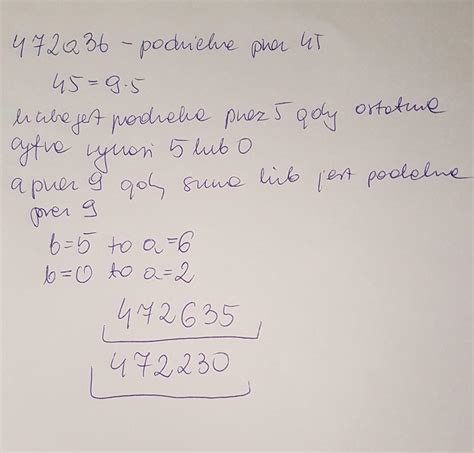 472a3b – podzielne przez 45
45 = 9·5
liczba jest podzielna przez 5 gdy ostatnia
cyfra wynosi 5 lub 0
a przez 9 gdy suma liczb jest podzielna
przez 9
b=5 to a=6
b=0 to a=2
472635
472230